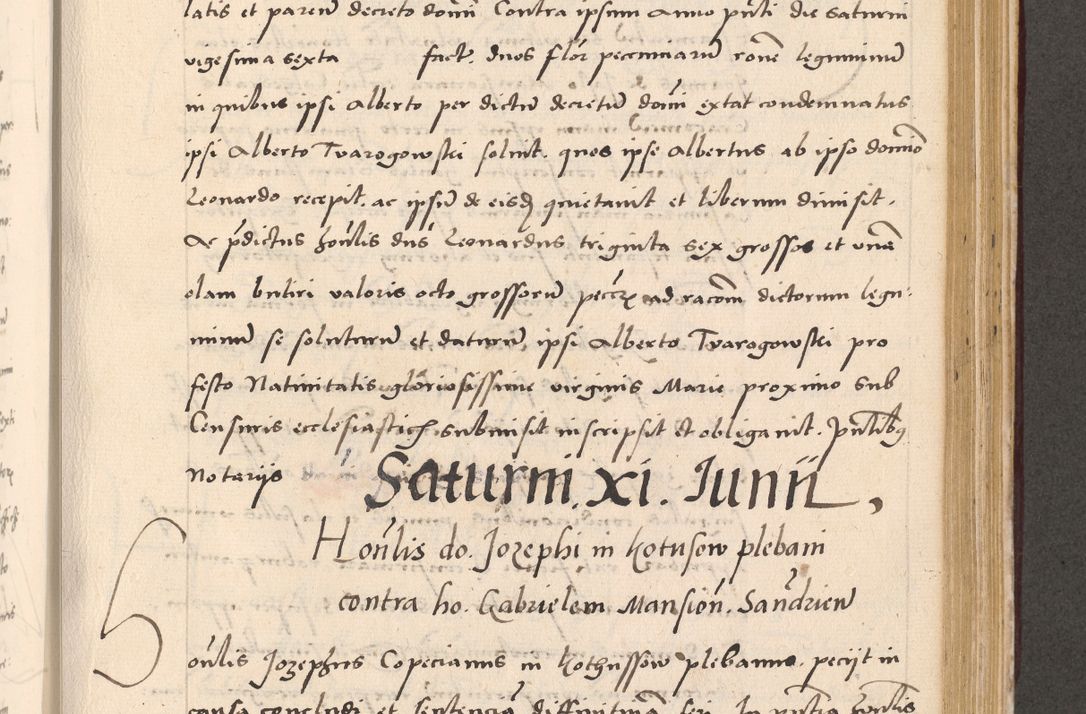 latis et parem decreto domi Contra ipsum Anno pnti die saturni
vigesima sexta fact. duos flor pecuniarum rone leguminum
in quibus ipsi Alberto per dictum decretum domi extat condemnatus
ipsi Alberto Tvarogowski soluit. quos ipse Albertus ab ipso domino
Leonardo recepit. ac ipsum de eisdem quietauit et liberum dimisit.
Ac pdictus honlis dns Leonardus triginta sex grossos et unam
olam butiri valoris octo grossorum ad racom dictorum legu:
minum se soluturum et daturum ipsi Alberto Tvarogowski pro
festo Natiuitatis gloriosissime virginis Marie proximo sub
Censuris ecclesiasticis submisit inscripsit et obligauit. pntibus
Notariis
Saturni. xi. Junii,
Honlis do. Jozephi in Kotusow plebani
contra ho. Gabrielem Mansion. Sandrien
Honlis Jozephus Copecianus in Kothussow plebanus. peciit in
causa concludi et sententiam diffinitiuam feri. In pntia honlis